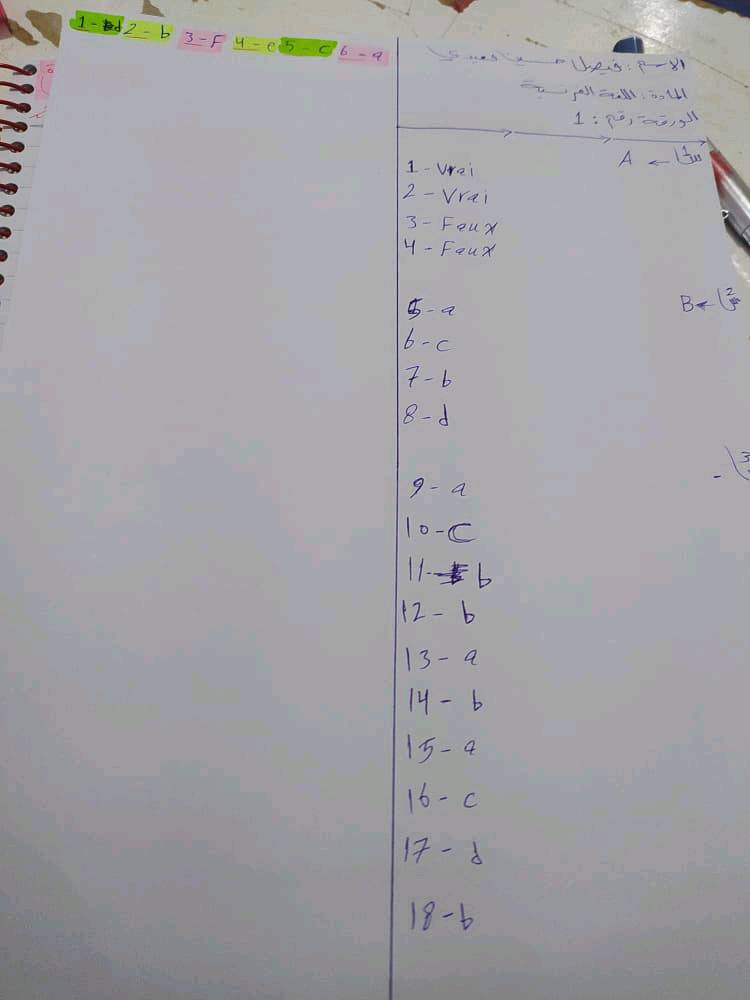 1-d 2-b 3-F 4-e 5-c 6-a
الاسم: فيصل
المادة: اللغة الفرنسية
الورقة رقم: 1
س1 ← A
1-Vrai
2-Vrai
3-Faux
4-Faux
س2 ← B
5-a
6-c
7-b
8-d
9-a
10-C
11-b
12-b
13-a
14-b
15-a
16-c
17-d
18-b